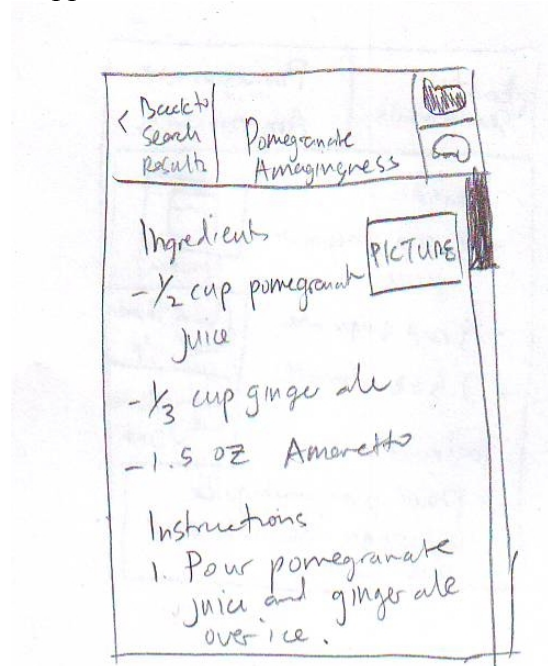 < Back to
Search
Results
Pomegranate
Amazingness
Ingredients
PICTURE
- 1/2 cup pomegranate
juice
- 1/3 cup ginger ale
- 1.5 OZ Amaretto
Instructions
1. Pour pomegranate
juice and ginger ale
over ice.